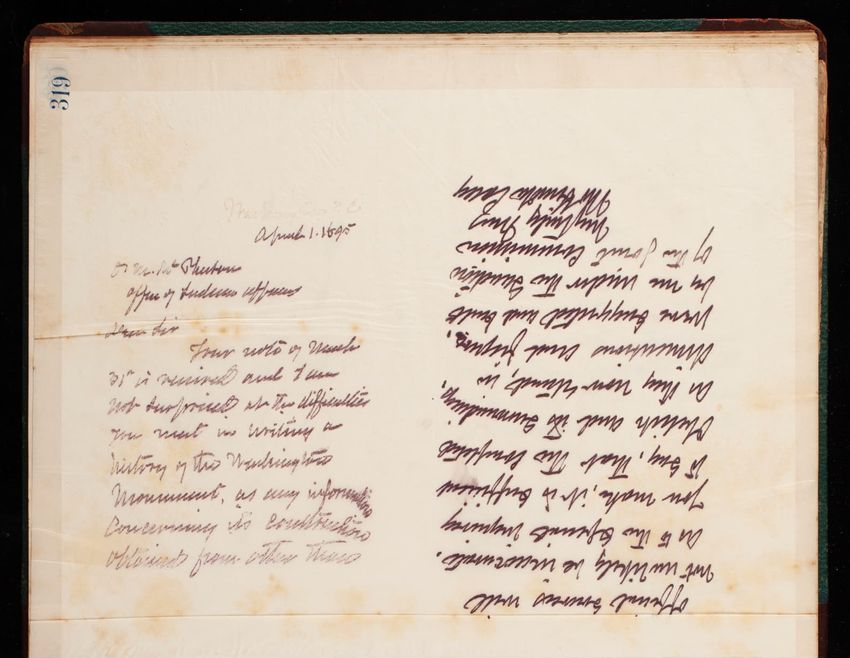 319
Washington D.C.
April 1. 1895
Dr M. McPherson
Office of Indian Affairs
Dear Sir
Your note of March
31st is received and I am
not surprised at the difficulties
you meet in writing a
history of the Washington
Monument, as any information
concerning its construction
obtained from other than
official sources will
not unlikely be inaccurate.
As to the especial inquiry
you make, it is sufficient
to say, that the completed
Obelisk and its surroundings,
as they now stand, in
dimensions and figure,
were suggested and built
by me under the direction
of the Joint Commission
Very truly yours
Thos Lincoln Casey